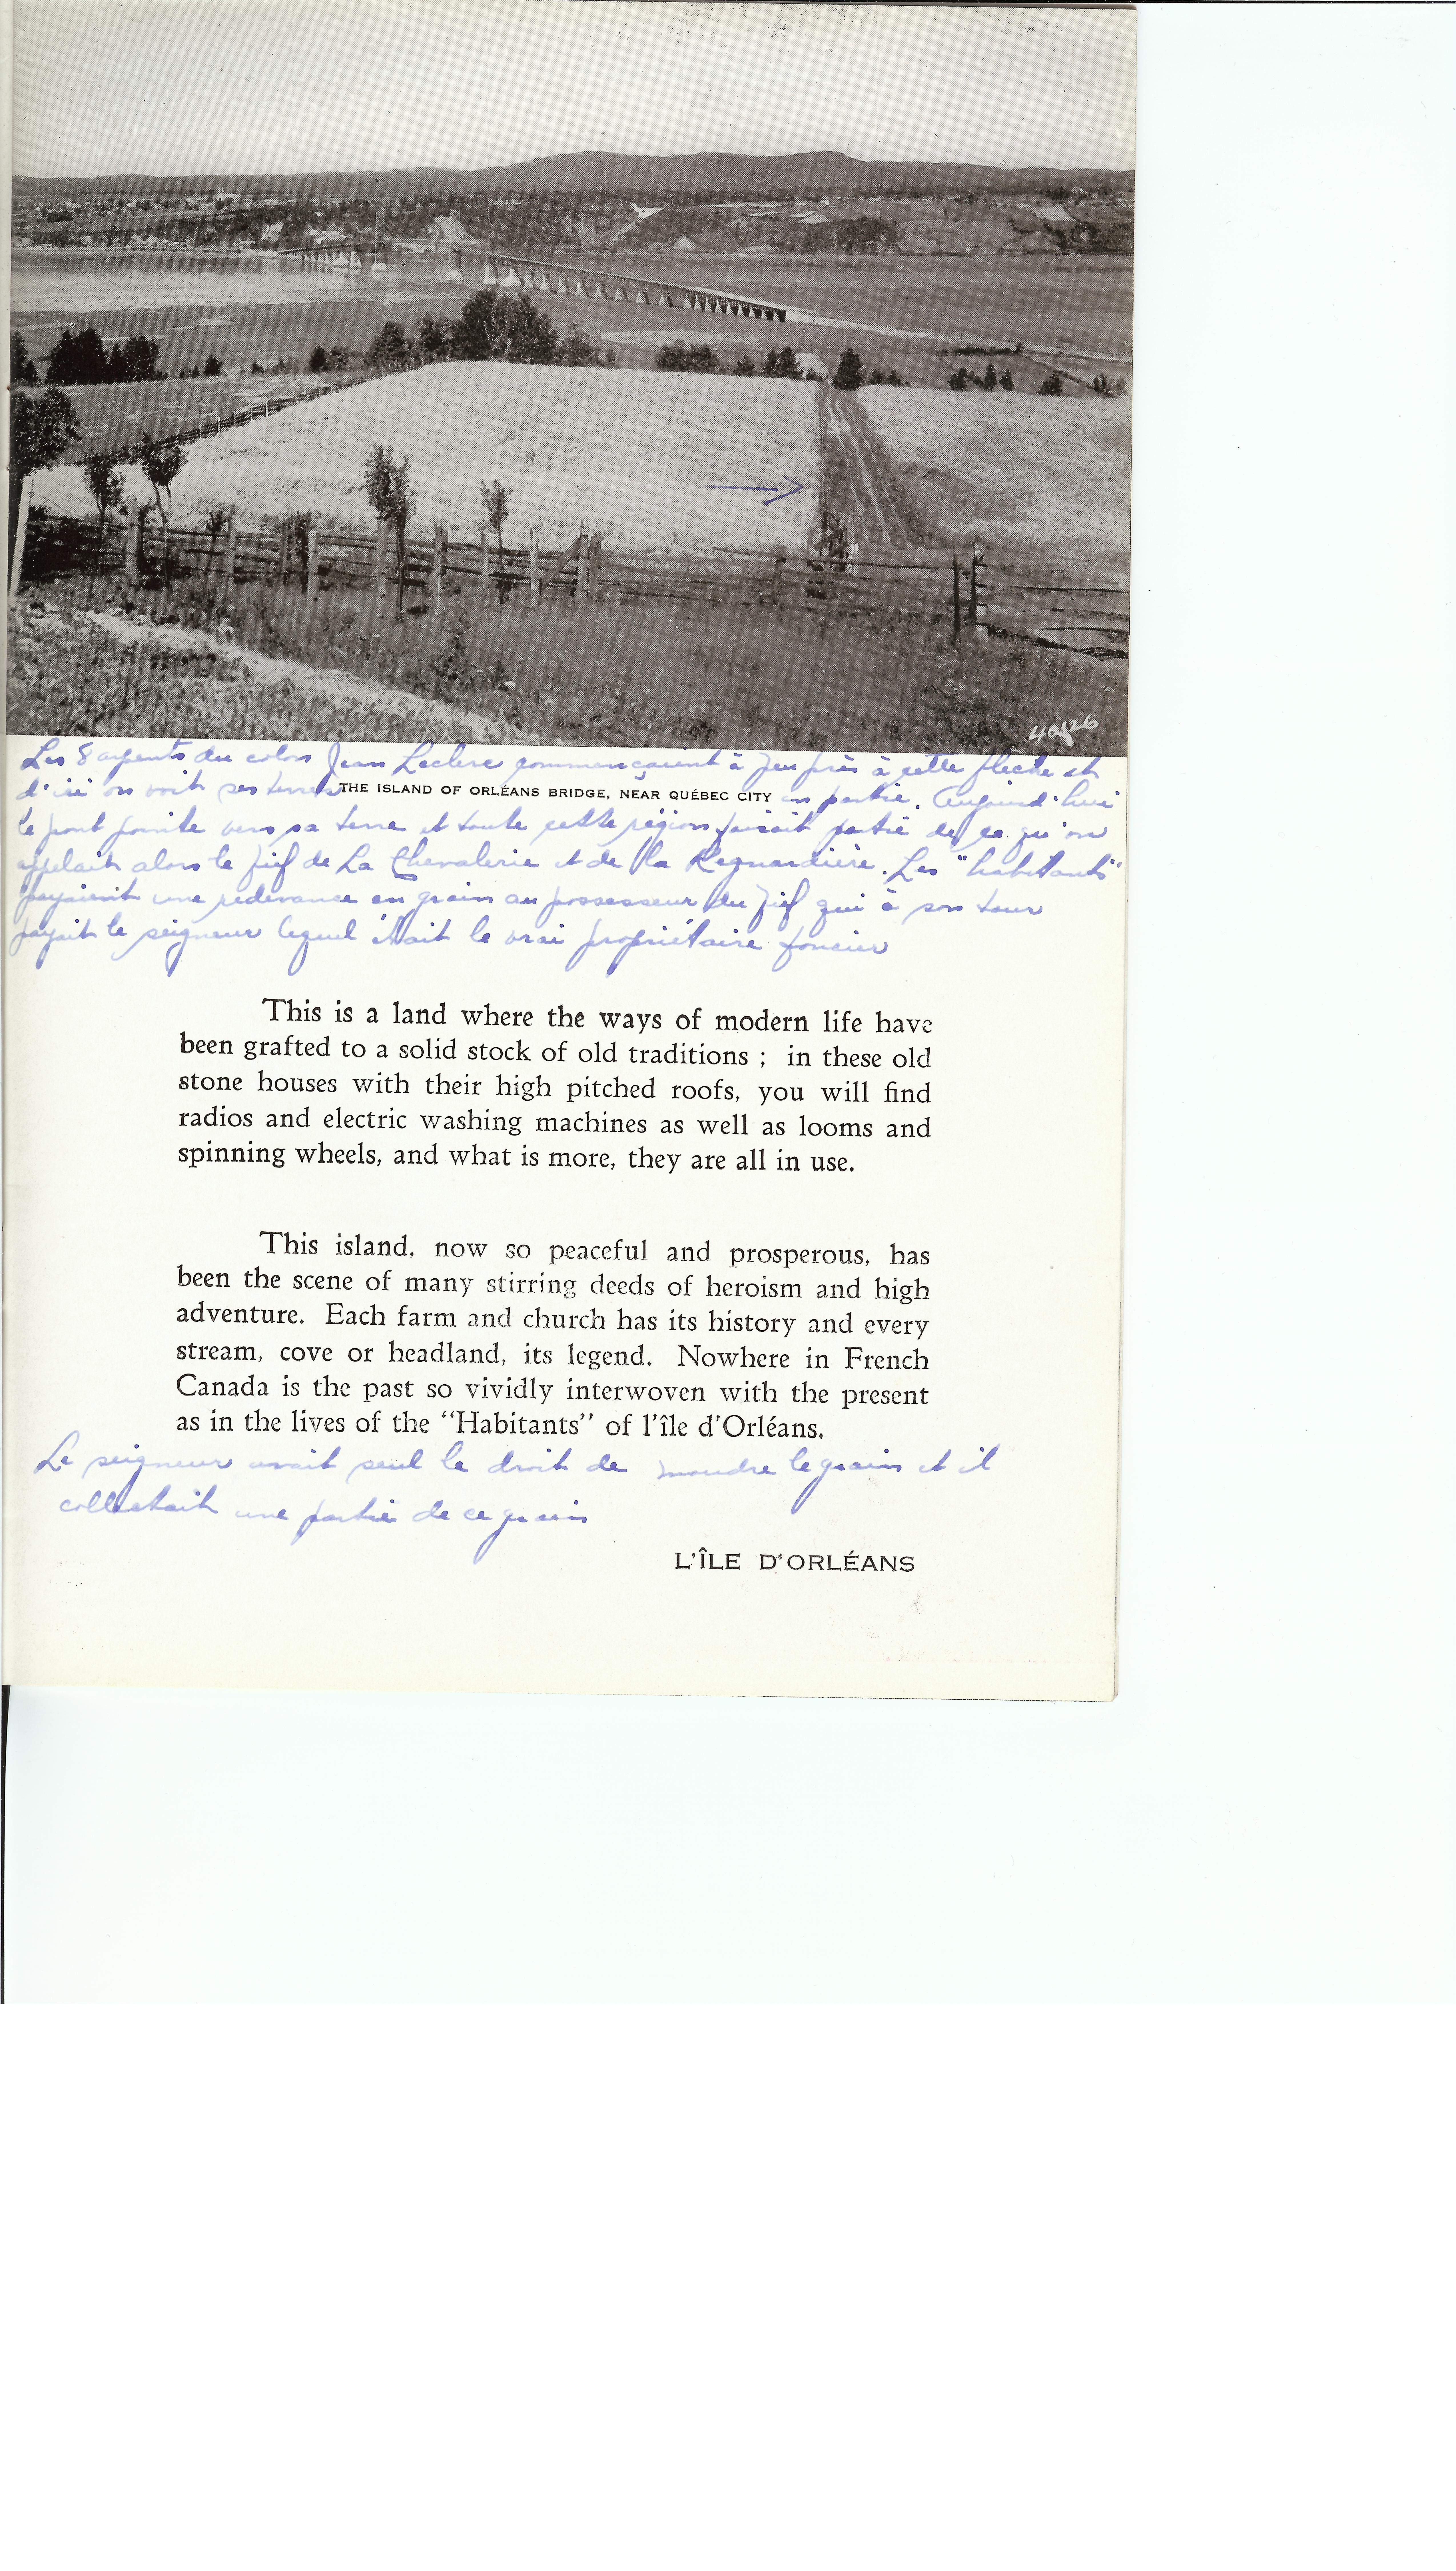 40926
Les 8 arpents du colon Jean Leclerc commençaient à peu près à cette flèche et
d'ici on voit ses terres en partie. Aujourd'hui
THE ISLAND OF ORLÉANS BRIDGE, NEAR QUÉBEC CITY
le pont pointe vers sa terre et toute cette région faisait partie de ce qu'on
appelait alors le fief de La Chevalerie et de la Regnardière. Les "habitants"
payaient une redevance en grain au possesseur du fief qui à son tour
payait le seigneur lequel était le vrai propriétaire foncier
This is a land where the ways of modern life have
been grafted to a solid stock of old traditions ; in these old
stone houses with their high pitched roofs, you will find
radios and electric washing machines as well as looms and
spinning wheels, and what is more, they are all in use.
This island, now so peaceful and prosperous, has
been the scene of many stirring deeds of heroism and high
adventure. Each farm and church has its history and every
stream, cove or headland, its legend. Nowhere in French
Canada is the past so vividly interwoven with the present
as in the lives of the “Habitants” of l'île d'Orléans.
Le seigneur avait seul le droit de moudre le grain et il
collectait une partie de ce grain
L'ÎLE D'ORLÉANS